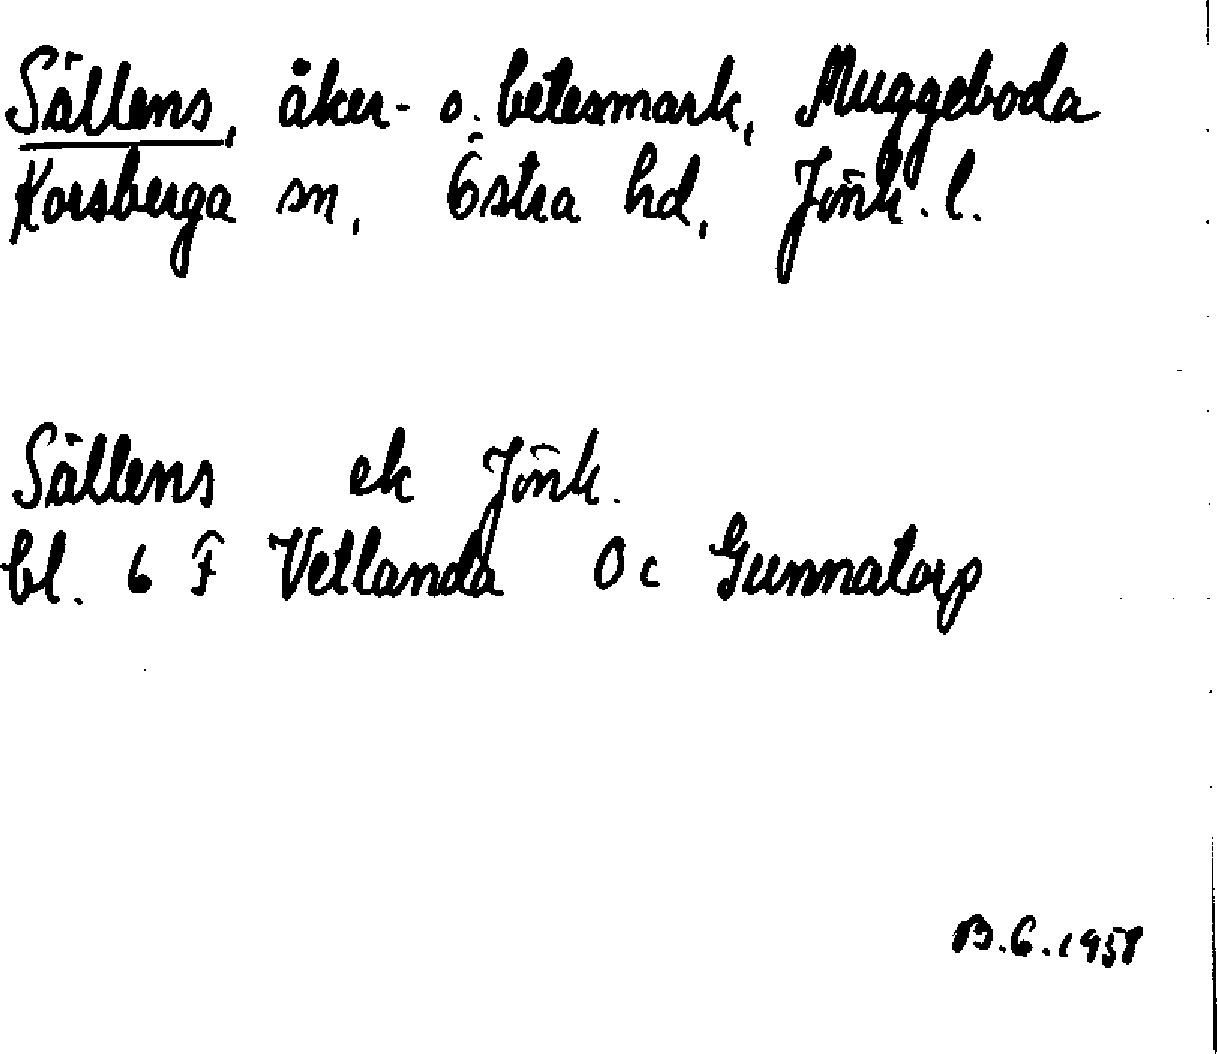 Sällens, åker- o. betesmark, Muggeboda
Korsberga sn, Östra hd, Jönk. l.
Sällens ek Jönk.
bl. 6 F Vetlanda 0c Gunnatorp
B.G. 1958